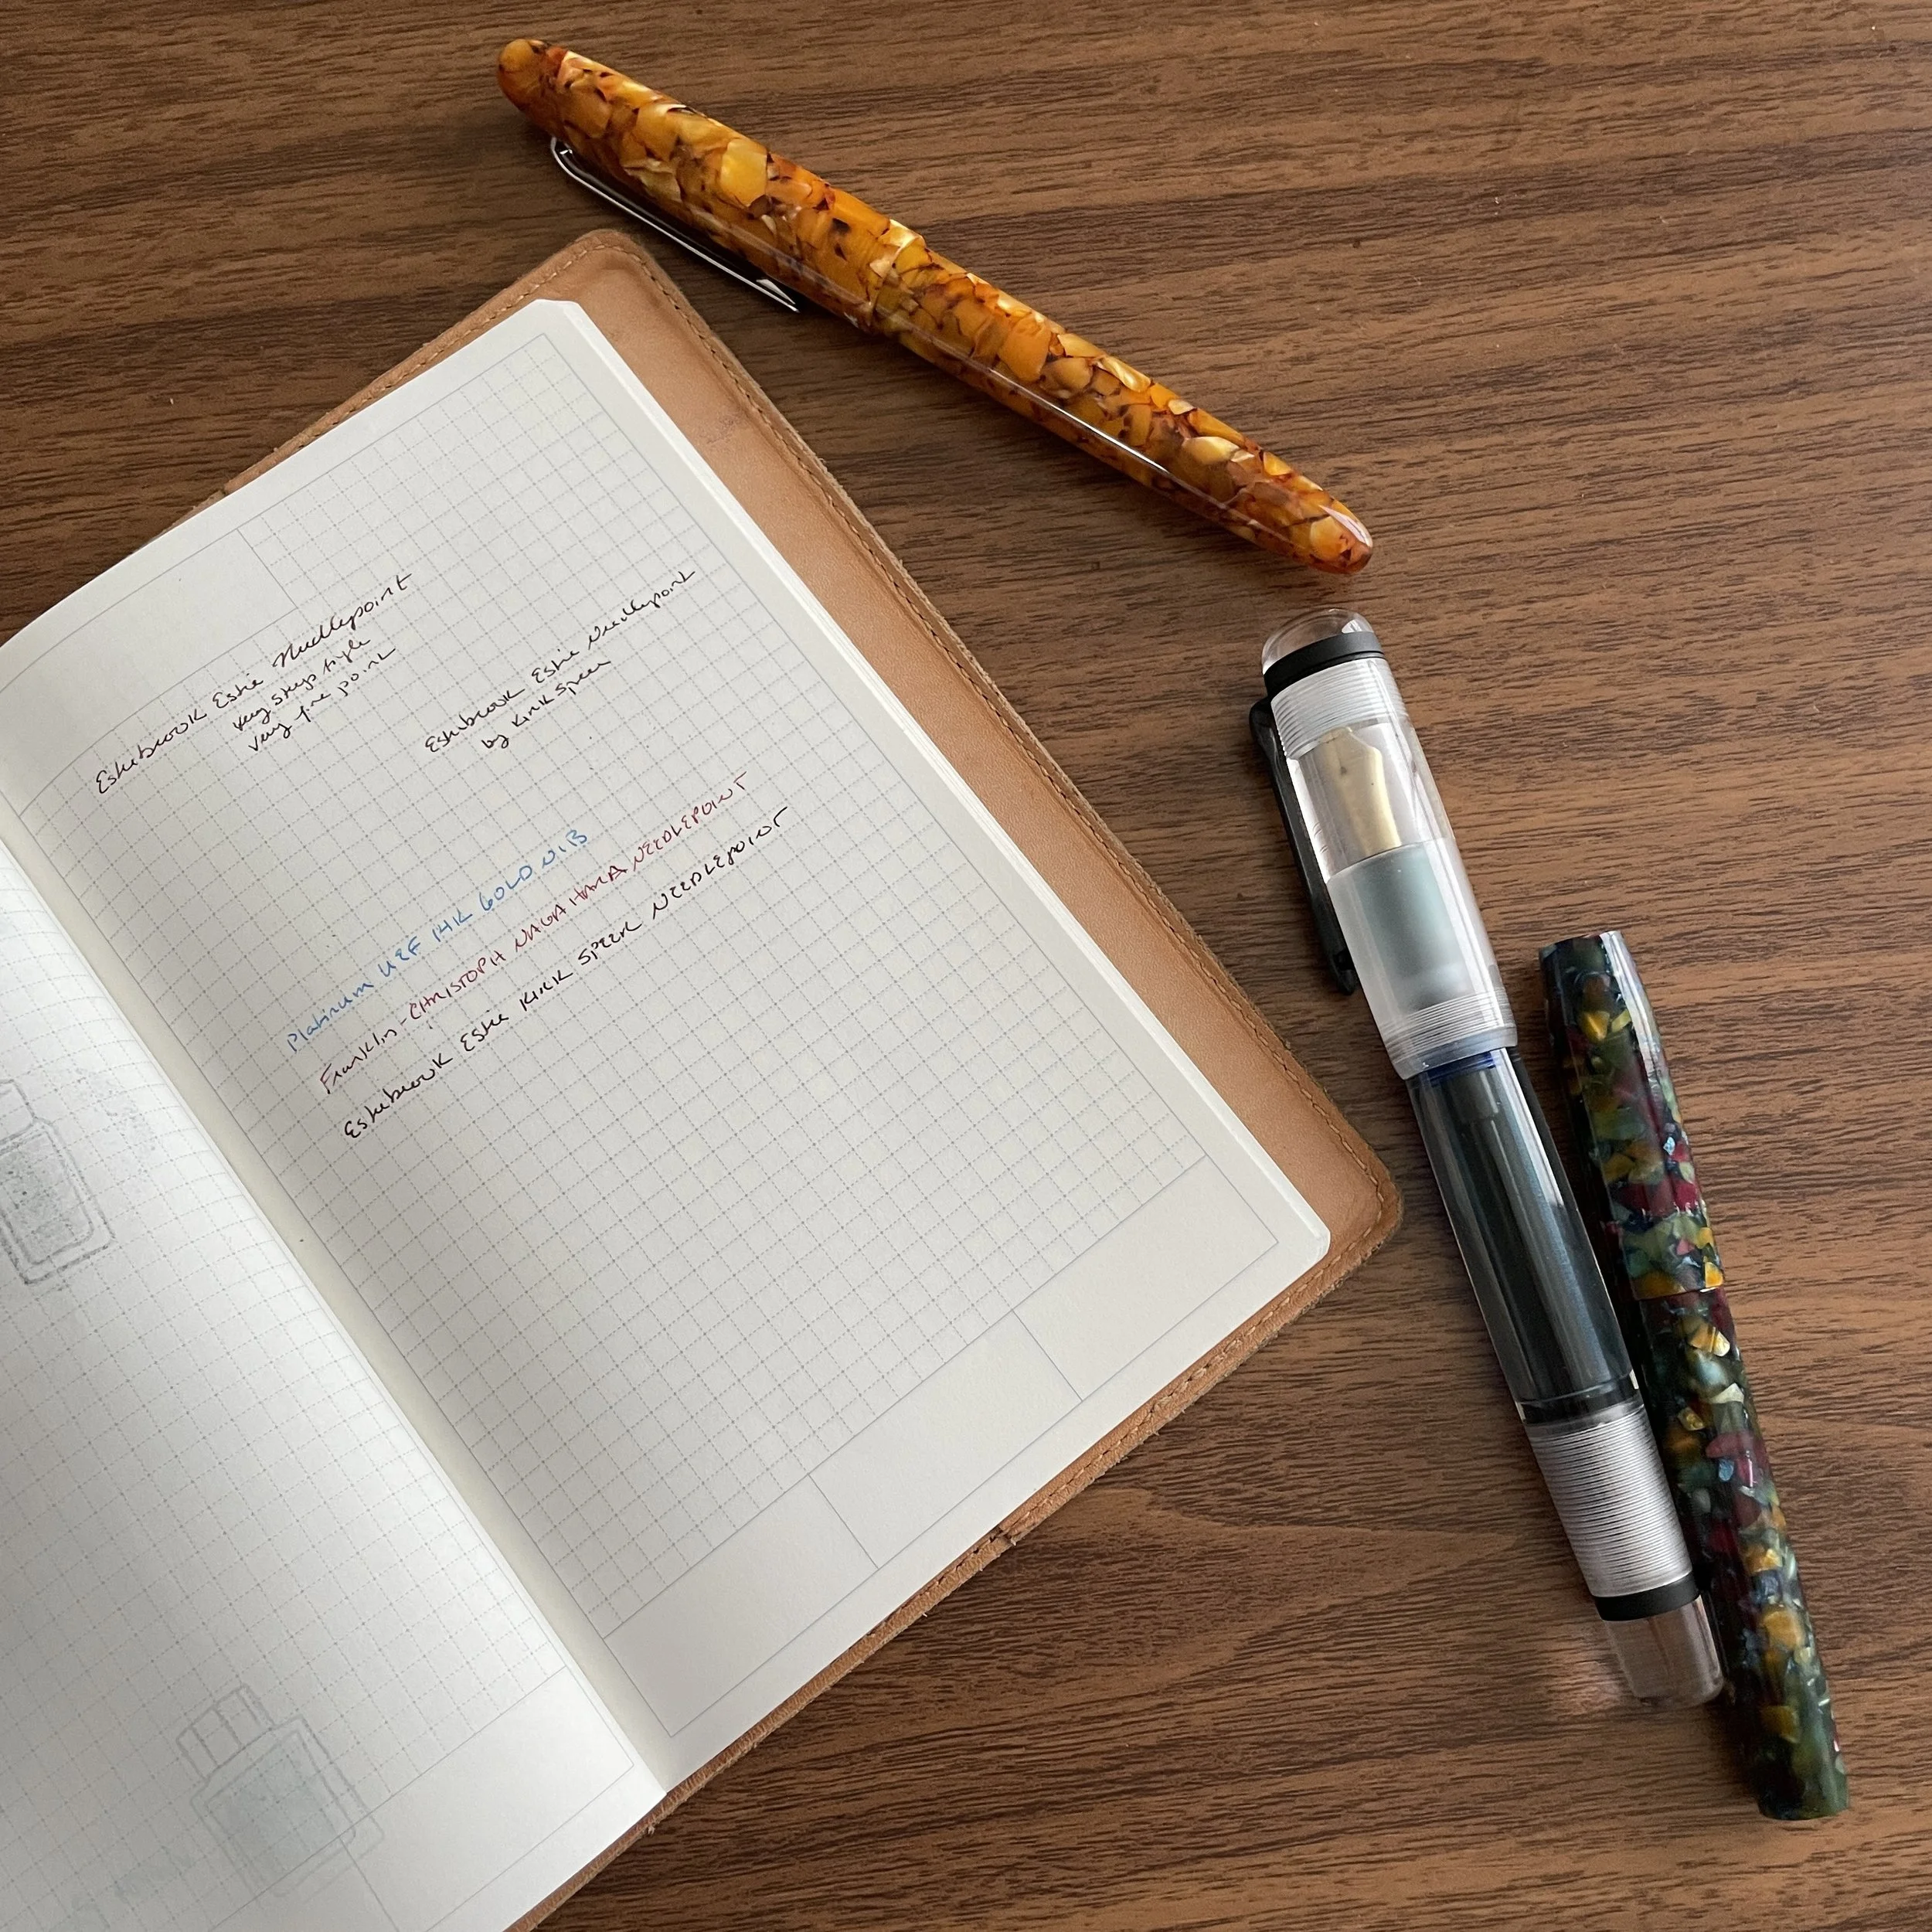 Esterbrook Estie Needlepoint
very steep angle
very fine point
Esterbrook Estie Needlepoint
by Kirk Speer
Platinum UEF 14K GOLD NIB
Franklin-CHRISTOPH NAGAHARA NEEDLEPOINT
Esterbrook Estie KIRK SPEER NEEDLEPOINT